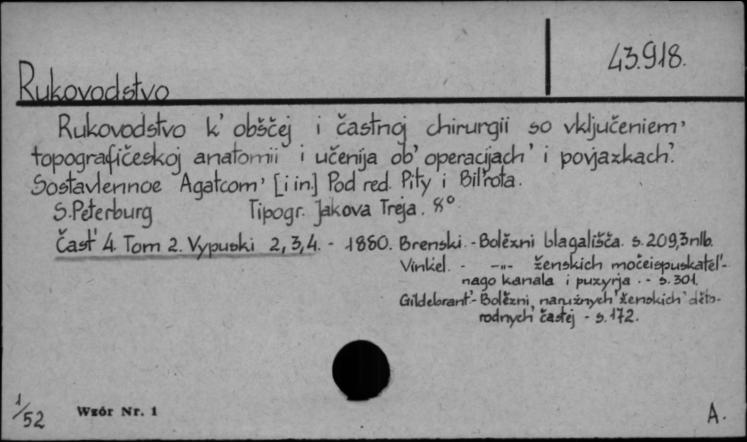 43.918.
Rukovodstvo
Rukovodstvo k' obščej i častnoj chirurgii so vključeniem'
topografičeskoj anatomii i učenija ob' operacijach' i povjazkach'.
Sostavlennoe Agatcom' [i in.] Pod red. Pity i Bil'rota.
S.Peterburg Tipogr. Jakova Treja. 8°
Čast' 4. Tom 2. Vypuski 2,3,4. - 1880. Brenski. - Bolězni blagališča. s. 209,3nlb.
Vinkel. - -„- ženskich močeispuskatel'-
nago kanala i puzyrja. - s. 301.
Gildebrant' - Bolězni naružnych' ženskich' děto-
rodnych' častej - s. 172.
1/52 Wzór Nr. 1 A.